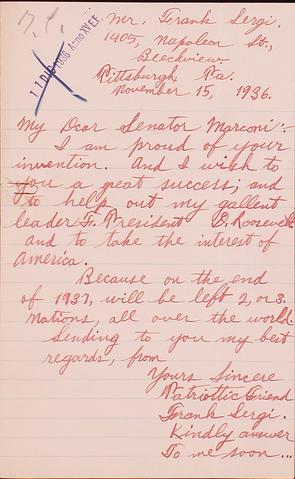 Mr. Frank Sergi.
1405, Napoleon St.,
Beechview.
Pittsburgh Pa.
November 15, 1936.
1936 Anno XV E.F.
My Dear Senator Marconi:
I am proud of your
invention. And I wish to
you a great success; and
to help out my gallent
leader F. President D. Roosevelt
and to take the interest of
America.
Because on the end
of 1937, will be left 2, or 3.
Nations, all over the world.
Sending to you my best
regards, from
Yours Sincere
Patriottic Friend
Frank Sergi.
Kindly answer
To me soon...